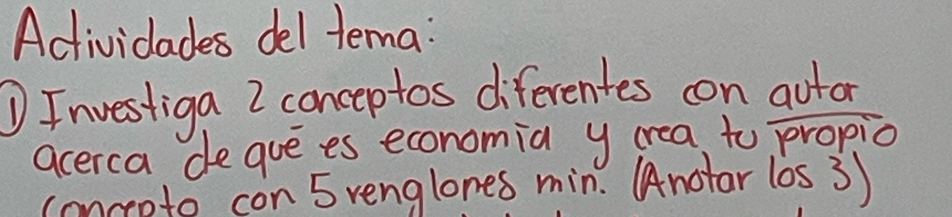 Actividades del tema:
① Investiga 2 conceptos diferentes con autor
acerca de qué es economía y crea tu propio
concepto con 5 renglones min. (Anotar los 3)